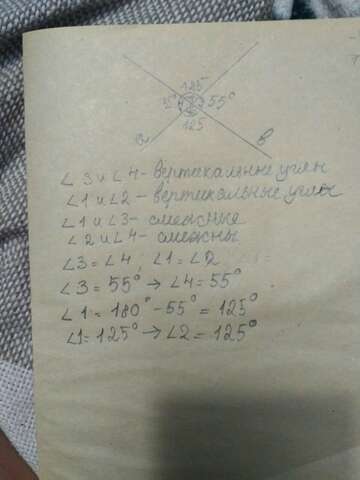 125
55°
125
а в
∠3 и ∠4 - вертикальные углы
∠1 и ∠2 - вертикальные углы
∠1 и ∠3 - смежные
∠2 и ∠4 - смежны
∠3 = ∠4; ∠1 = ∠2
∠3 = 55° → ∠4 = 55°
∠1 = 180° - 55° = 125°
∠1 = 125° → ∠2 = 125°